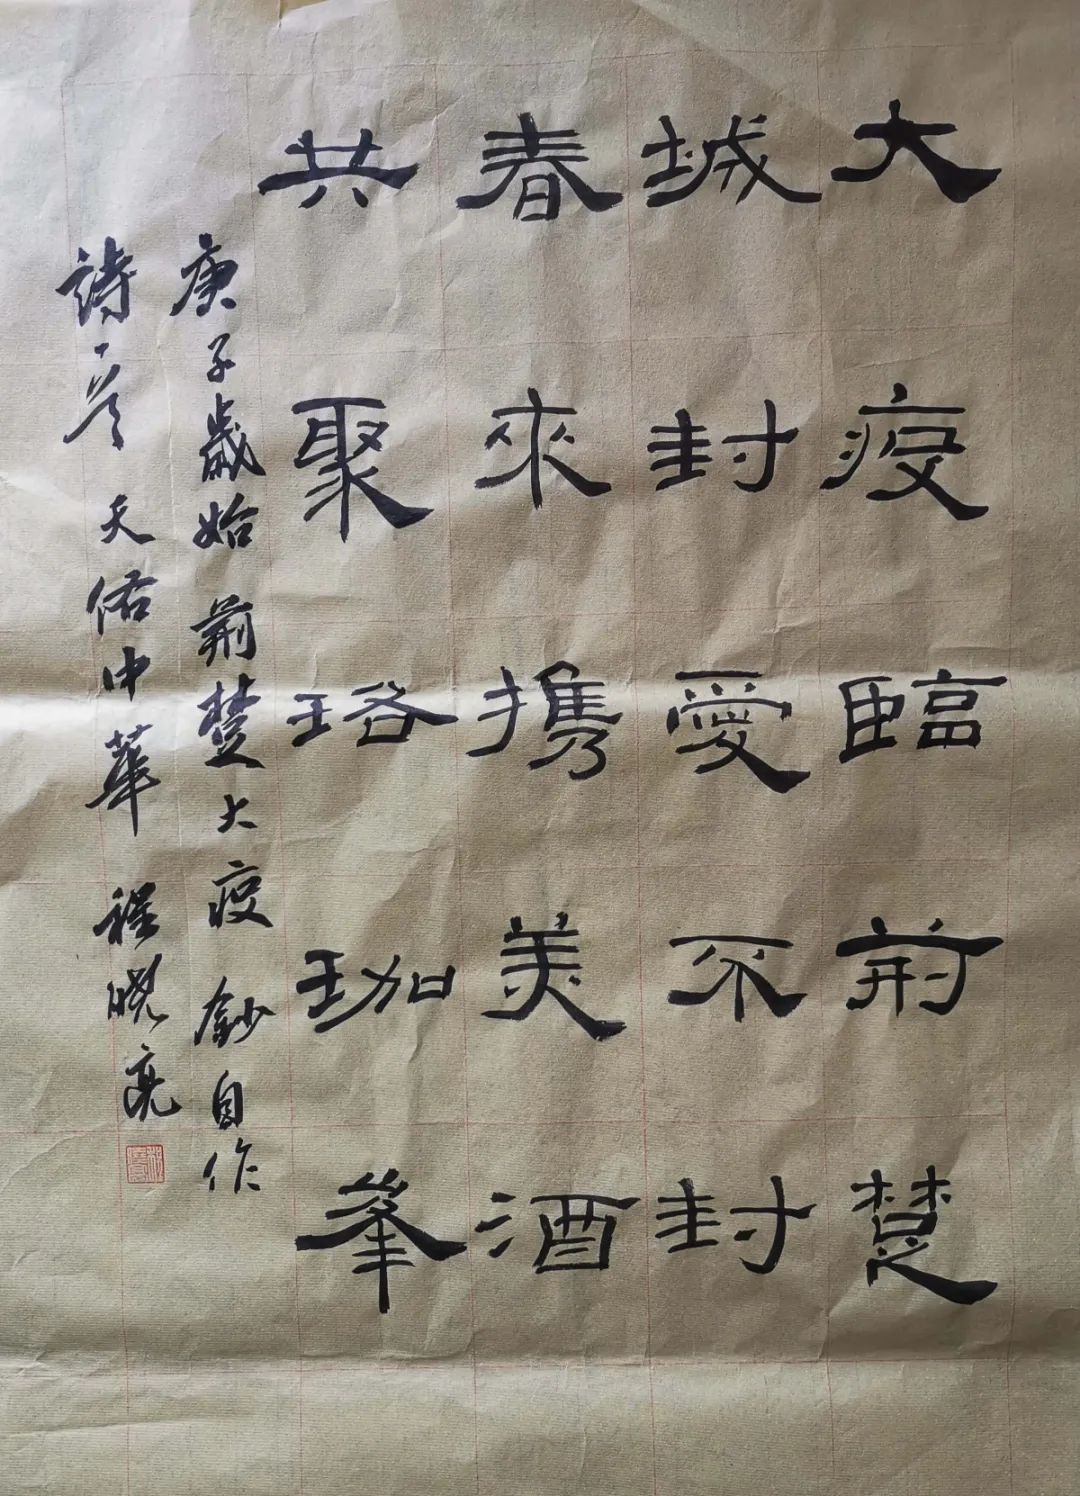 大疫臨荊楚
城封愛不封
春來攜美酒
共聚珞珈峯
庚子歲始荊楚大疫鈔自作
詩一首天佑中華程曉亮